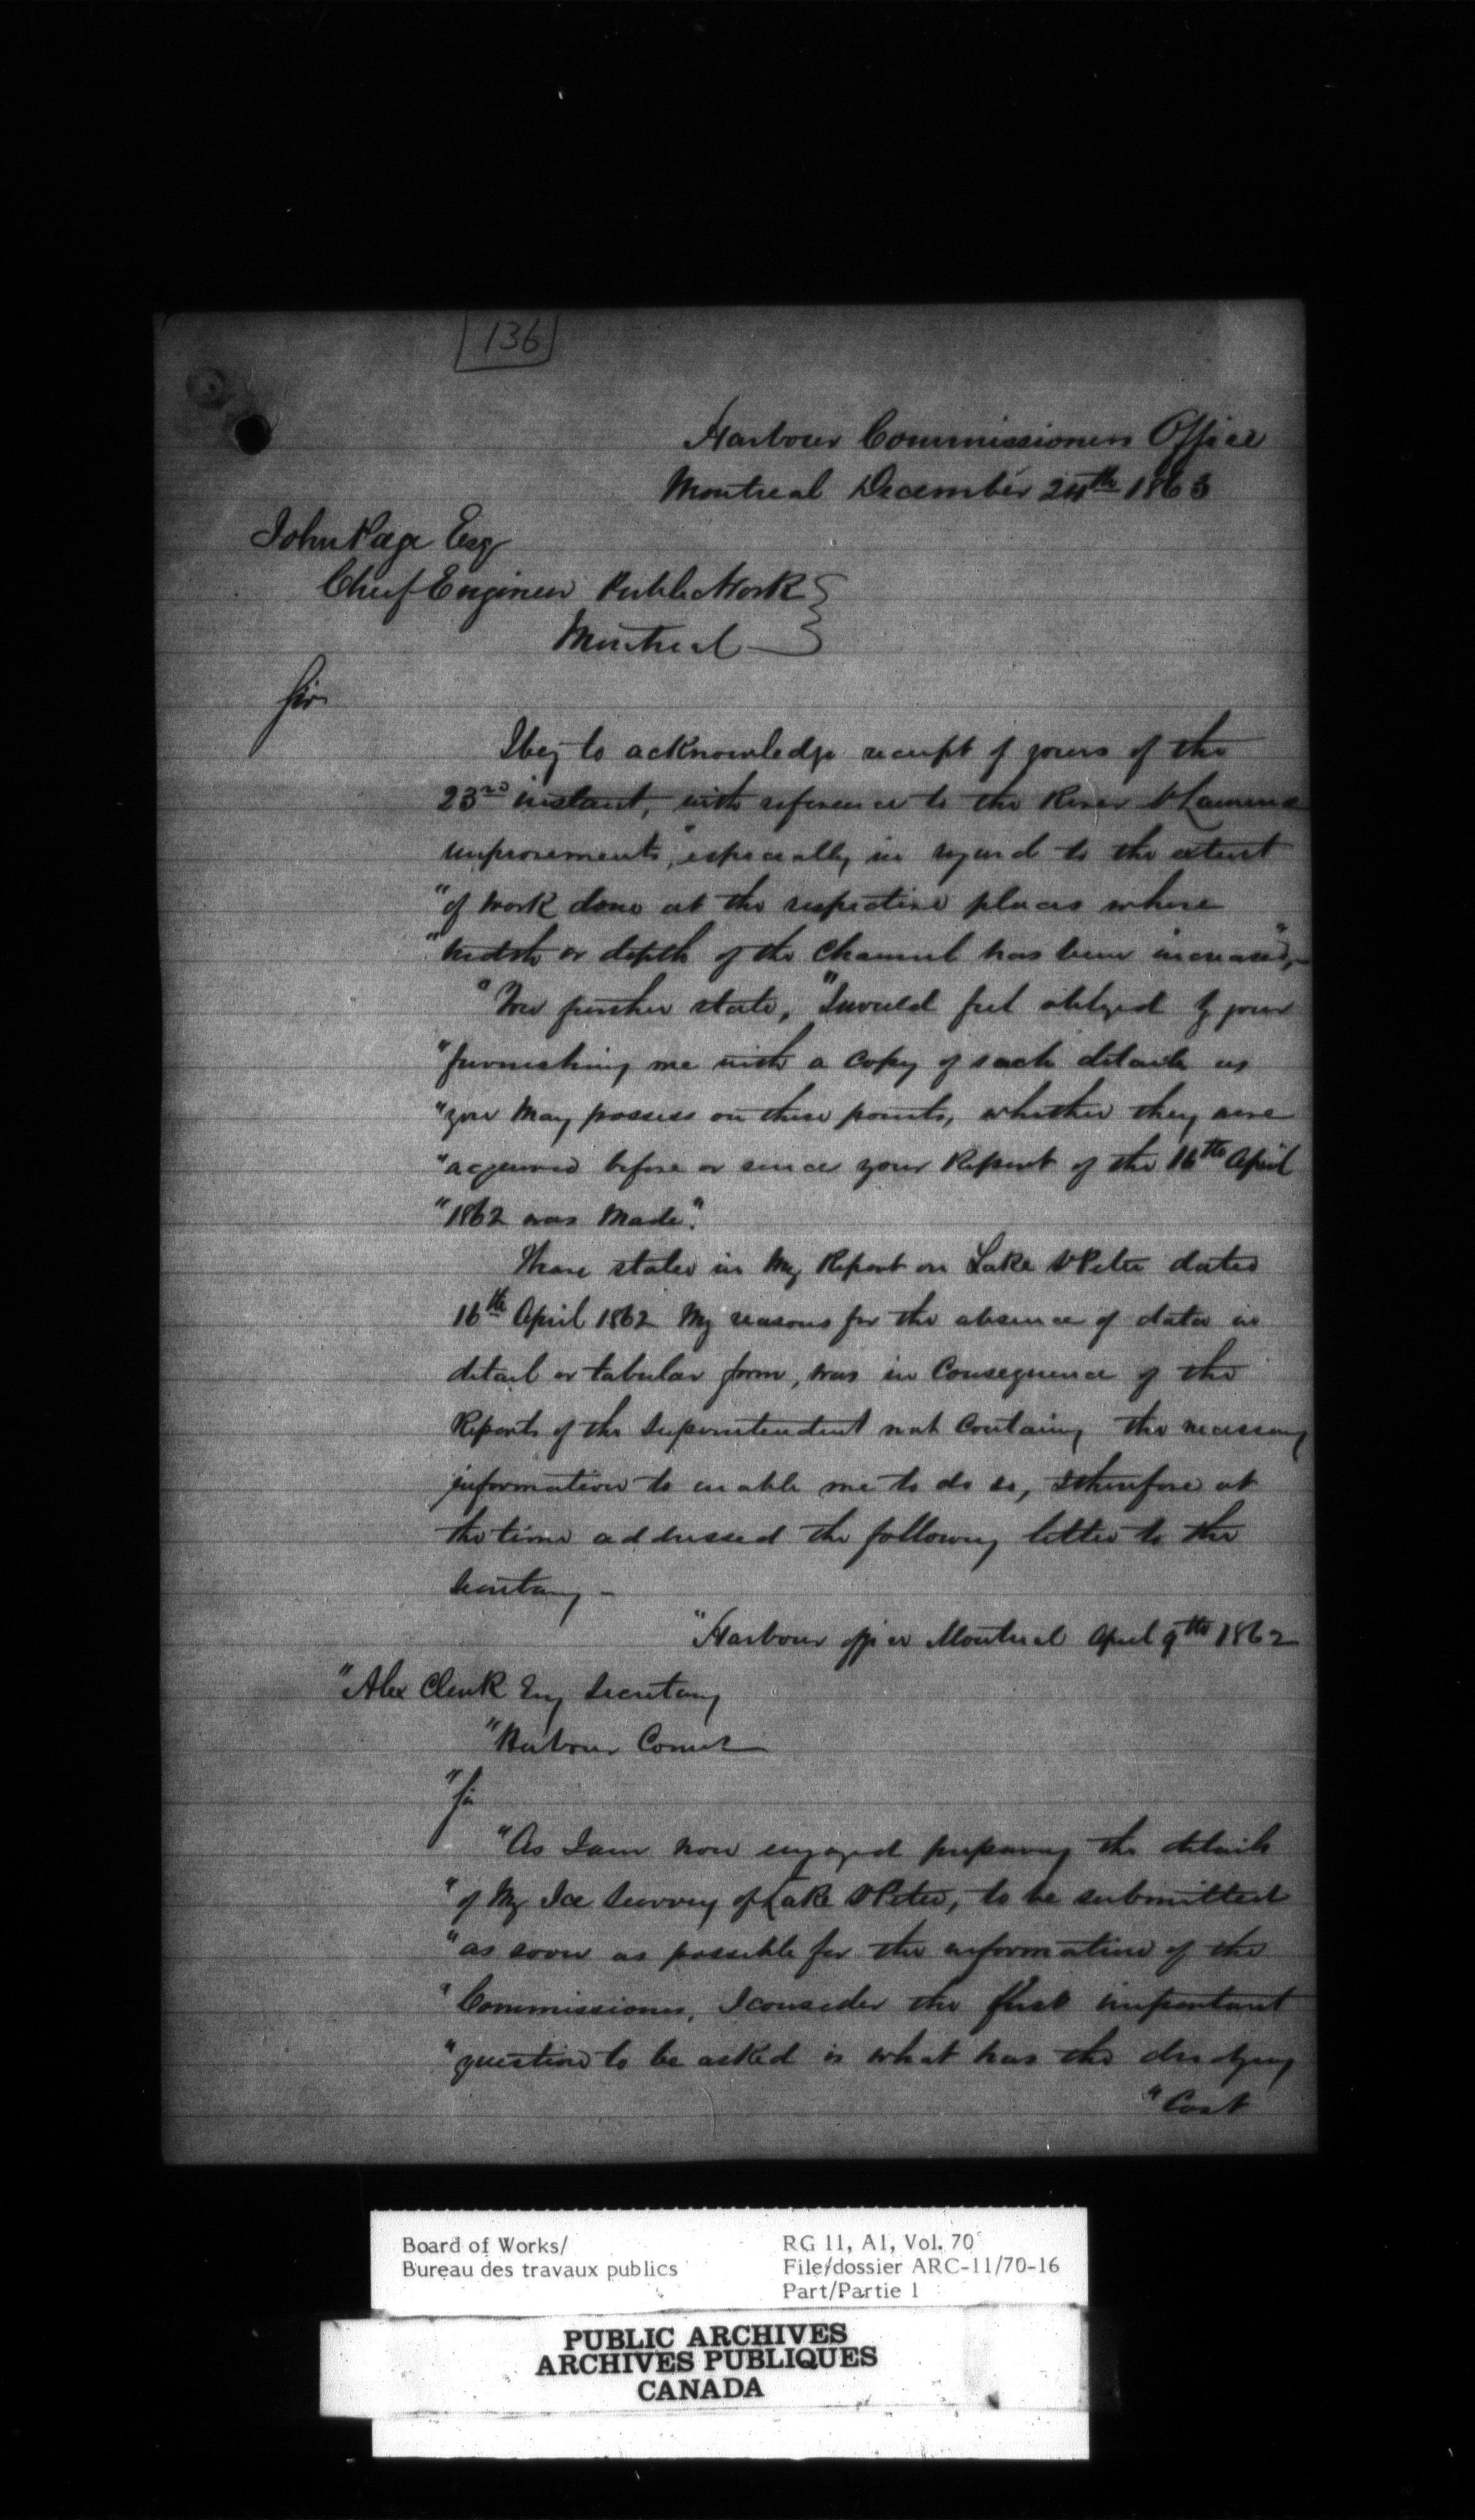 136
Harbour Commissioners Office
Montreal December 24th 1863
John Page Esq
Chief Engineer Public Work
Montreal
Sir
I beg to acknowledge receipt of yours of the
23rd instant, with reference to the River St Lawrence
improvements, "especially in regard to the extent
"of work done at the respective places where
"width or depth of the Channel has been increased",
"You further state, "I would feel obliged by your
"furnishing me with a copy of such details as
"you may possess on these points, whether they were
"acquired before or since your Report of the 16th April
"1862 was made".
I have stated in my Report on Lake St Peter dated
16th April 1862 My reasons for the absence of data in
detail or tabular form, was in Consequence of the
Reports of the Superintendent not Containing the necessary
information to enable me to do so, I therefore at
the time addressed the following letter to the
Secretary -
"Harbour office Montreal April 9th 1862
"Alex Clerk Esq Secretary
"Harbour Comrs
"Sir
"As I am now engaged preparing the details
"of My Ice Survey of Lake St Peter, to be submitted
"as soon as possible for the information of the
"Commissioners, I consider the first important
"question to be asked is what has the dredging
"Cost
Board of Works/
Bureau des travaux publics
RG 11, A1, Vol. 70
File/dossier ARC-11/70-16
Part/Partie 1
PUBLIC ARCHIVES
ARCHIVES PUBLIQUES
CANADA